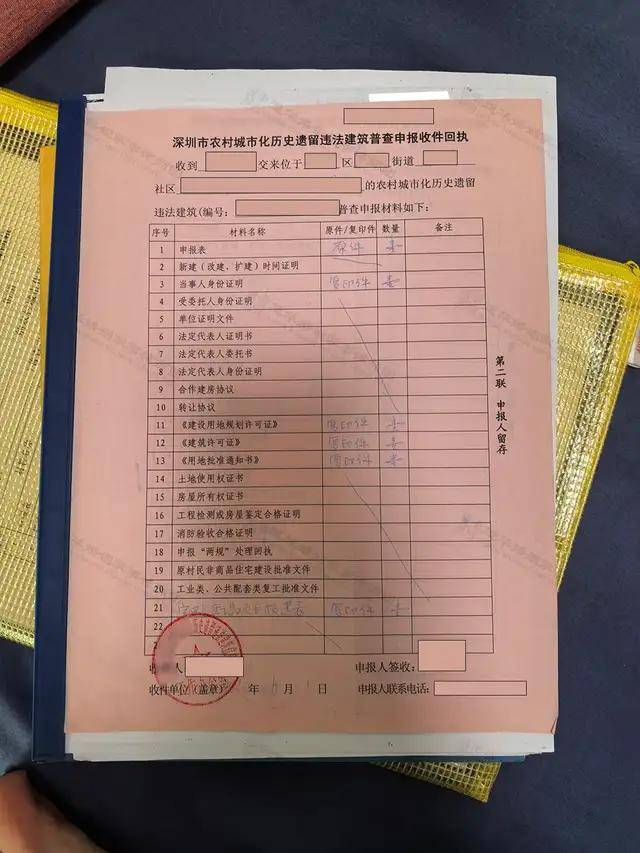 深圳市农村城市化历史遗留违法建筑普查申报收件回执
收到 交来位于 区 街道
社区 的农村城市化历史遗留
违法建筑(编号: 普查申报材料如下:
序号 材料名称 原件/复印件 数量 备注
1 申报表 原件 壹
2 新建(改建、扩建)时间证明
3 当事人身份证明 复印件 壹
4 受委托人身份证明
5 单位证明文件
6 法定代表人证明书
7 法定代表人委托书
8 法定代表人身份证明
9 合作建房协议
10 转让协议
11 《建设用地规划许可证》 复印件 壹
12 《建筑许可证》 复印件 壹
13 《用地批准通知书》 复印件 壹
14 土地使用权证书
15 房屋所有权证书
16 工程检测或房屋鉴定合格证明
17 消防验收合格证明
18 申报“两规”处理回执
19 原村民非商品住宅建设批准文件
20 工业类、公共配套类复工批准文件
21 复印件 壹
22
收 人 申报人签收:
收件单位(盖章) 年 月 日 申报人联系电话:
第二联 申报人留存